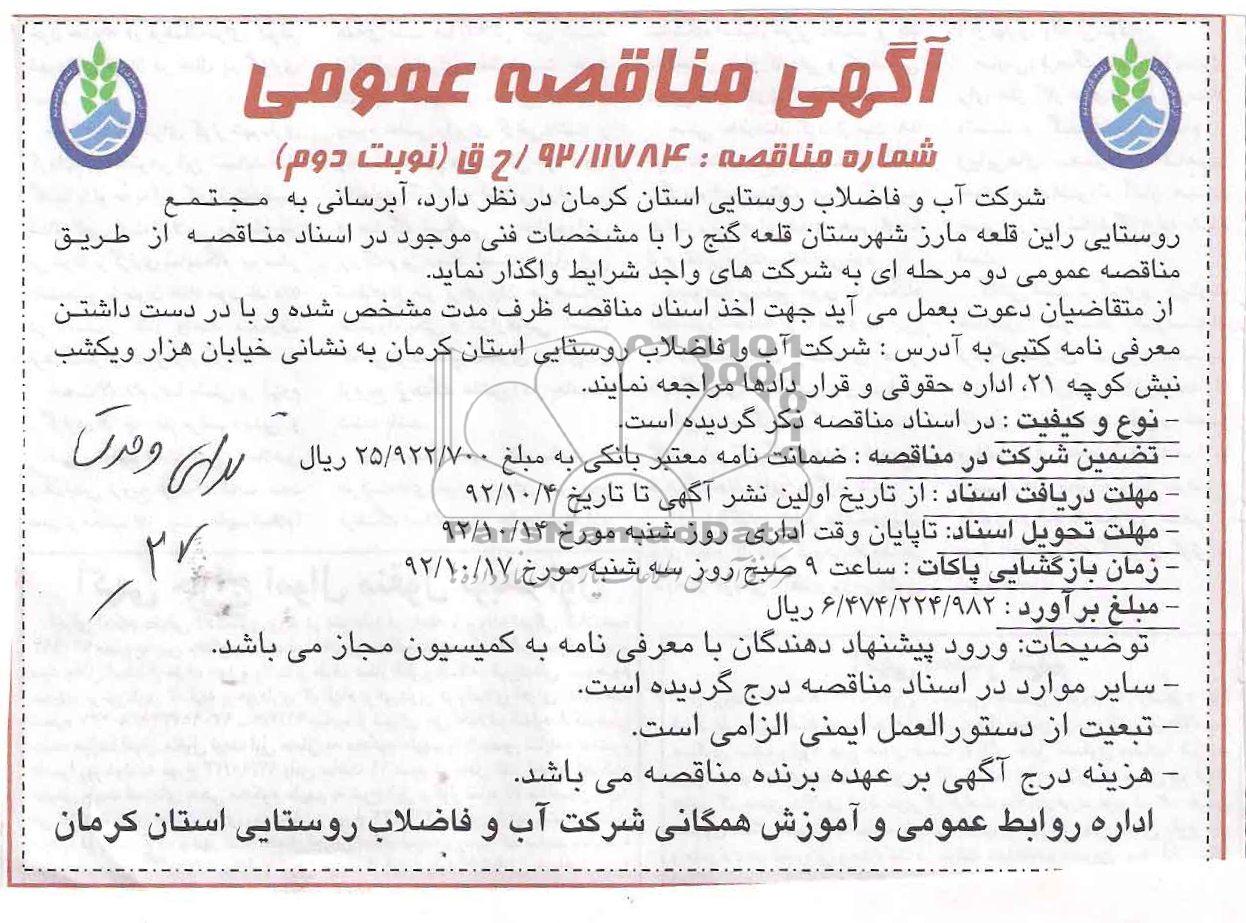 آگهی مناقصه عمومی
شماره مناقصه : ۹۲/۱۱۷۸۴ /ح ق (نوبت دوم)
شرکت آب و فاضلاب روستایی استان کرمان در نظر دارد، آبرسانی به مجتمع
روستایی راین قلعه مارز شهرستان قلعه گنج را با مشخصات فنی موجود در اسناد مناقصه از طریق
مناقصه عمومی دو مرحله ای به شرکت های واجد شرایط واگذار نماید.
از متقاضیان دعوت بعمل می آید جهت اخذ اسناد مناقصه ظرف مدت مشخص شده و با در دست داشتن
معرفی نامه کتبی به آدرس : شرکت آب و فاضلاب روستایی استان کرمان به نشانی خیابان هزار ویکشب
نبش کوچه ۲۱، اداره حقوقی و قرار دادها مراجعه نمایند.
- نوع و کیفیت : در اسناد مناقصه ذکر گردیده است.
- تضمین شرکت در مناقصه : ضمانت نامه معتبر بانکی به مبلغ ۲۵/۹۲۲/۷۰۰ ریال
- مهلت دریافت اسناد : از تاریخ اولین نشر آگهی تا تاریخ ۹۲/۱۰/۴
- مهلت تحویل اسناد: تاپایان وقت اداری روز شنبه مورخ ۹۲/۱۰/۱۴
- زمان بازگشایی پاکات : ساعت ۹ صبح روز سه شنبه مورخ ۹۲/۱۰/۱۷
- مبلغ برآورد : ۶/۴۷۴/۲۲۴/۹۸۲ ریال
توضیحات: ورود پیشنهاد دهندگان با معرفی نامه به کمیسیون مجاز می باشد.
- سایر موارد در اسناد مناقصه درج گردیده است.
- تبعیت از دستورالعمل ایمنی الزامی است.
- هزینه درج آگهی بر عهده برنده مناقصه می باشد.
اداره روابط عمومی و آموزش همگانی شرکت آب و فاضلاب روستایی استان کرمان
ParsNamadData